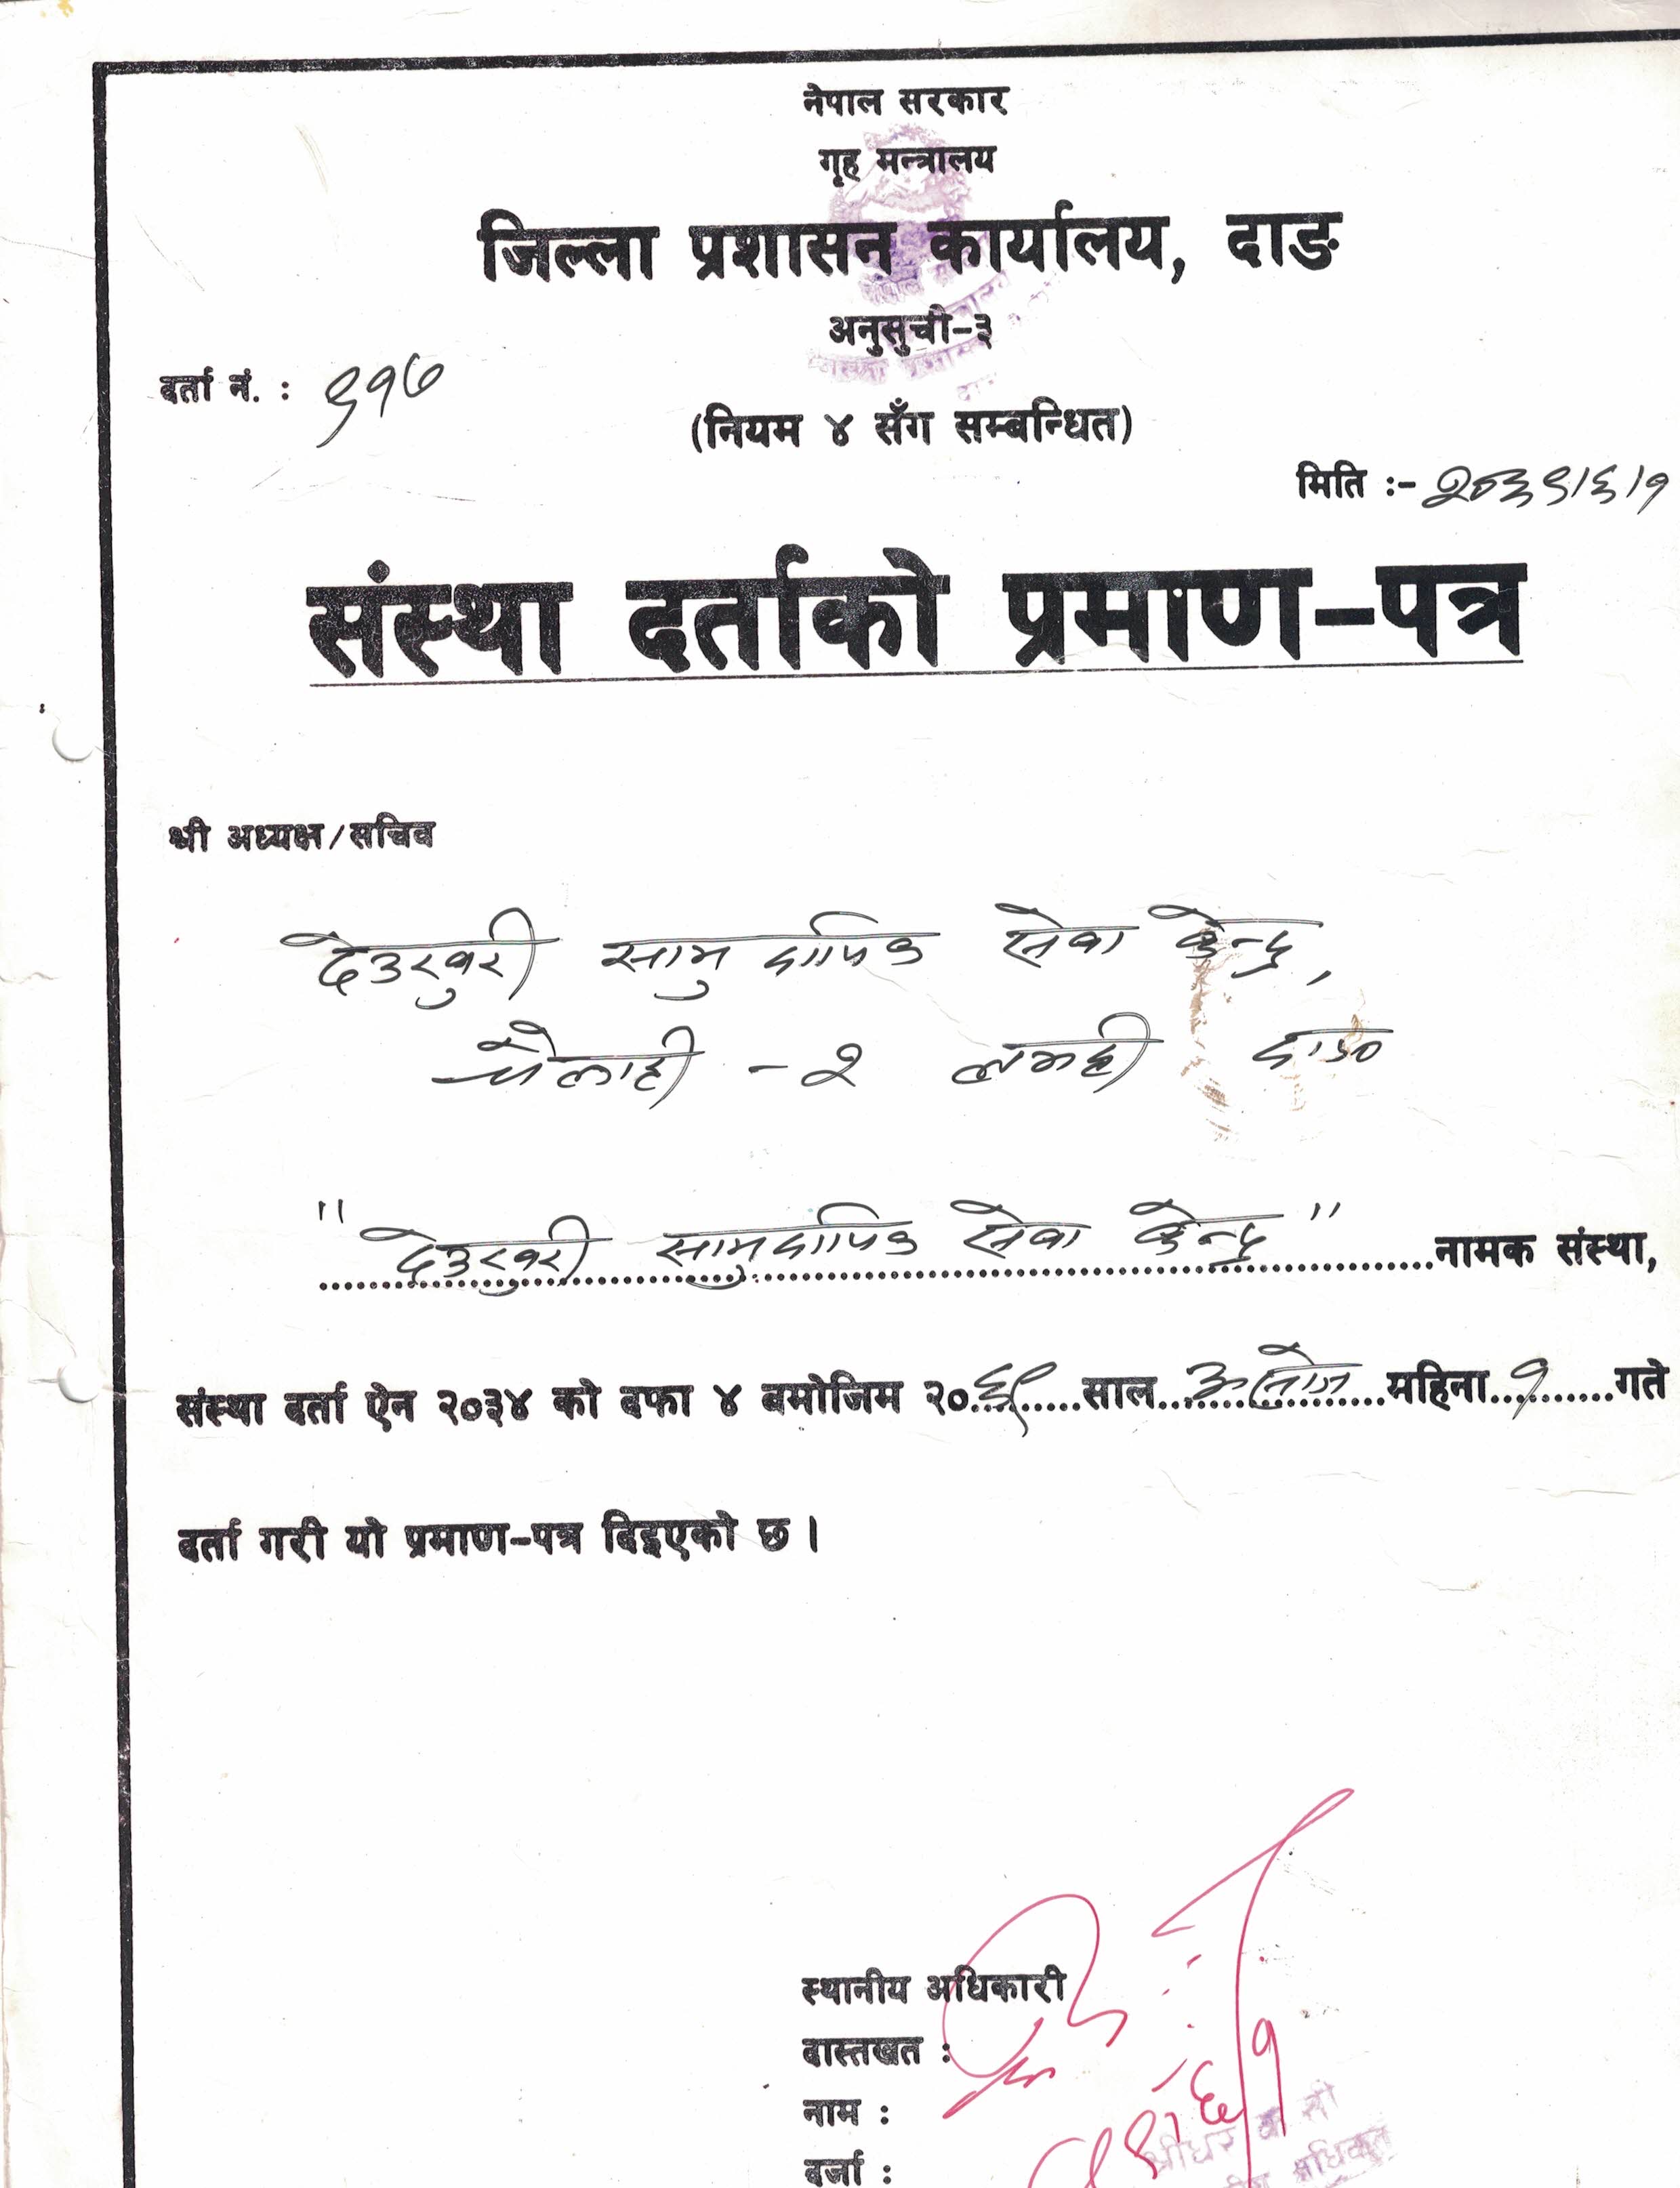 नेपाल सरकार
गृह मन्त्रालय
जिल्ला प्रशासन कार्यालय, दाङ
अनुसुची-३
दर्ता नं. : ९१७
(नियम ४ सँग सम्बन्धित)
मिति :- २०६९।६।१
संस्था दर्ताको प्रमाण-पत्र
श्री अध्यक्ष/सचिव
देउखुरी सामुदायिक सेवा केन्द्र,
चैलाही - २ लमही दाङ
" देउखुरी सामुदायिक सेवा केन्द्र " नामक संस्था,
संस्था दर्ता ऐन २०३४ को दफा ४ बमोजिम २०६९ साल असोज महिना १ गते
दर्ता गरी यो प्रमाण-पत्र दिइएको छ ।
स्थानीय अधिकारी
दास्तखत :
नाम :
दर्जा :